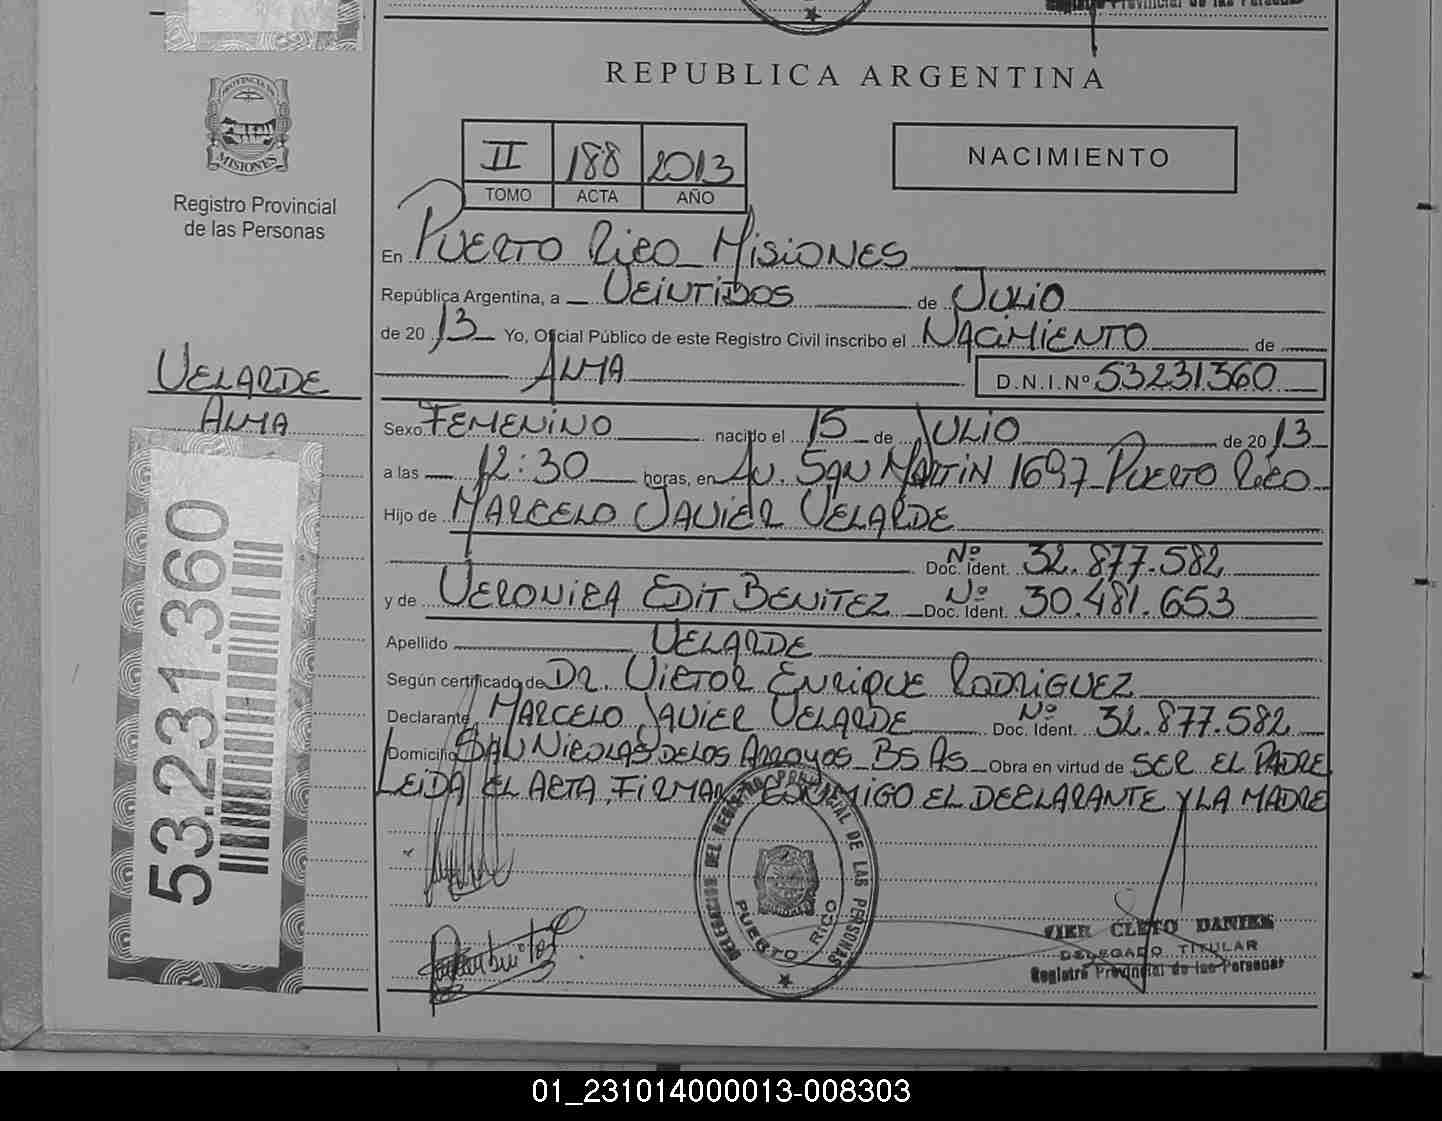 Registro Provincial de las Personas
REPUBLICA ARGENTINA
PROVINCIA DE
MISIONES
Registro Provincial
de las Personas
II 188 2013
TOMO ACTA AÑO
NACIMIENTO
En PUERTO RICO MISIONES
República Argentina, a VEINTIDOS de JULIO
de 20 13 Yo, Oficial Público de este Registro Civil inscribo el NACIMIENTO de
ALMA D.N.I.Nº 53231360
VELARDE
ALMA
Sexo FEMENINO nacido el 15 de JULIO de 20 13
a las 12:30 horas, en AV. SAN MARTIN 1697 PUERTO RICO
Hijo de MARCELO JAVIER VELARDE
Doc. Ident. Nº 32.877.582
y de VERONICA EDIT BENITEZ Doc. Ident. Nº 30.481.653
Apellido VELARDE
Según certificado de DR. VICTOR ENRIQUE RODRIGUEZ
Declarante MARCELO JAVIER VELARDE Doc. Ident. Nº 32.877.582
Domicilio SAN NICOLAS DE LOS ARROYOS BS AS Obra en virtud de SER EL PADRE
LEIDA EL ACTA, FIRMAN CONMIGO EL DECLARANTE Y LA MADRE
53.231.360
DELEGACION DEL REGISTRO PROVINCIAL DE LAS PERSONAS
PUERTO RICO
CLETO DANIEL
DELEGADO TITULAR
Registro Provincial de las Personas
01_231014000013-008303